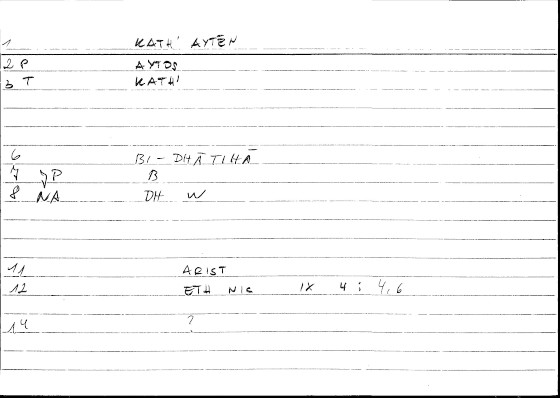 1 KATH' AYTĒN
2 P AYTOS
3 T KATH'
6 BI-DHĀTIHĀ
7 JP B
8 NA DH W
11 ARIST
12 ETH NIC IX 4 : 4,6
14 ?